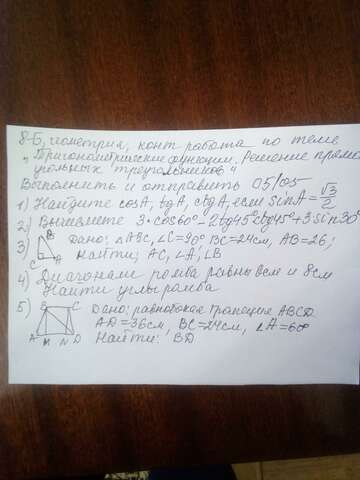 8-Б, геометрия, конт. работа по теме
"Тригонометрические функции. Решение прямо
угольных треугольников"
Выполнить и отправить 05/05
1) Найдите cosA, tgA, ctgA, если sinA = √3/2
2) Вычислите 3·cos60° - 2tg45°ctg45° + 3sin30°
3) Дано: △ABC, ∠C=90° BC=24см, AB=26;
Найти; AC, ∠A; ∠B
B
C
A
4) Диагонали ромба равны 8см и 8см
Найти углы ромба
5) Дано: равнобокая трапеция ABCD
AD=36см, BC=24см, ∠A=60°
Найти: BD
B C
A M N D